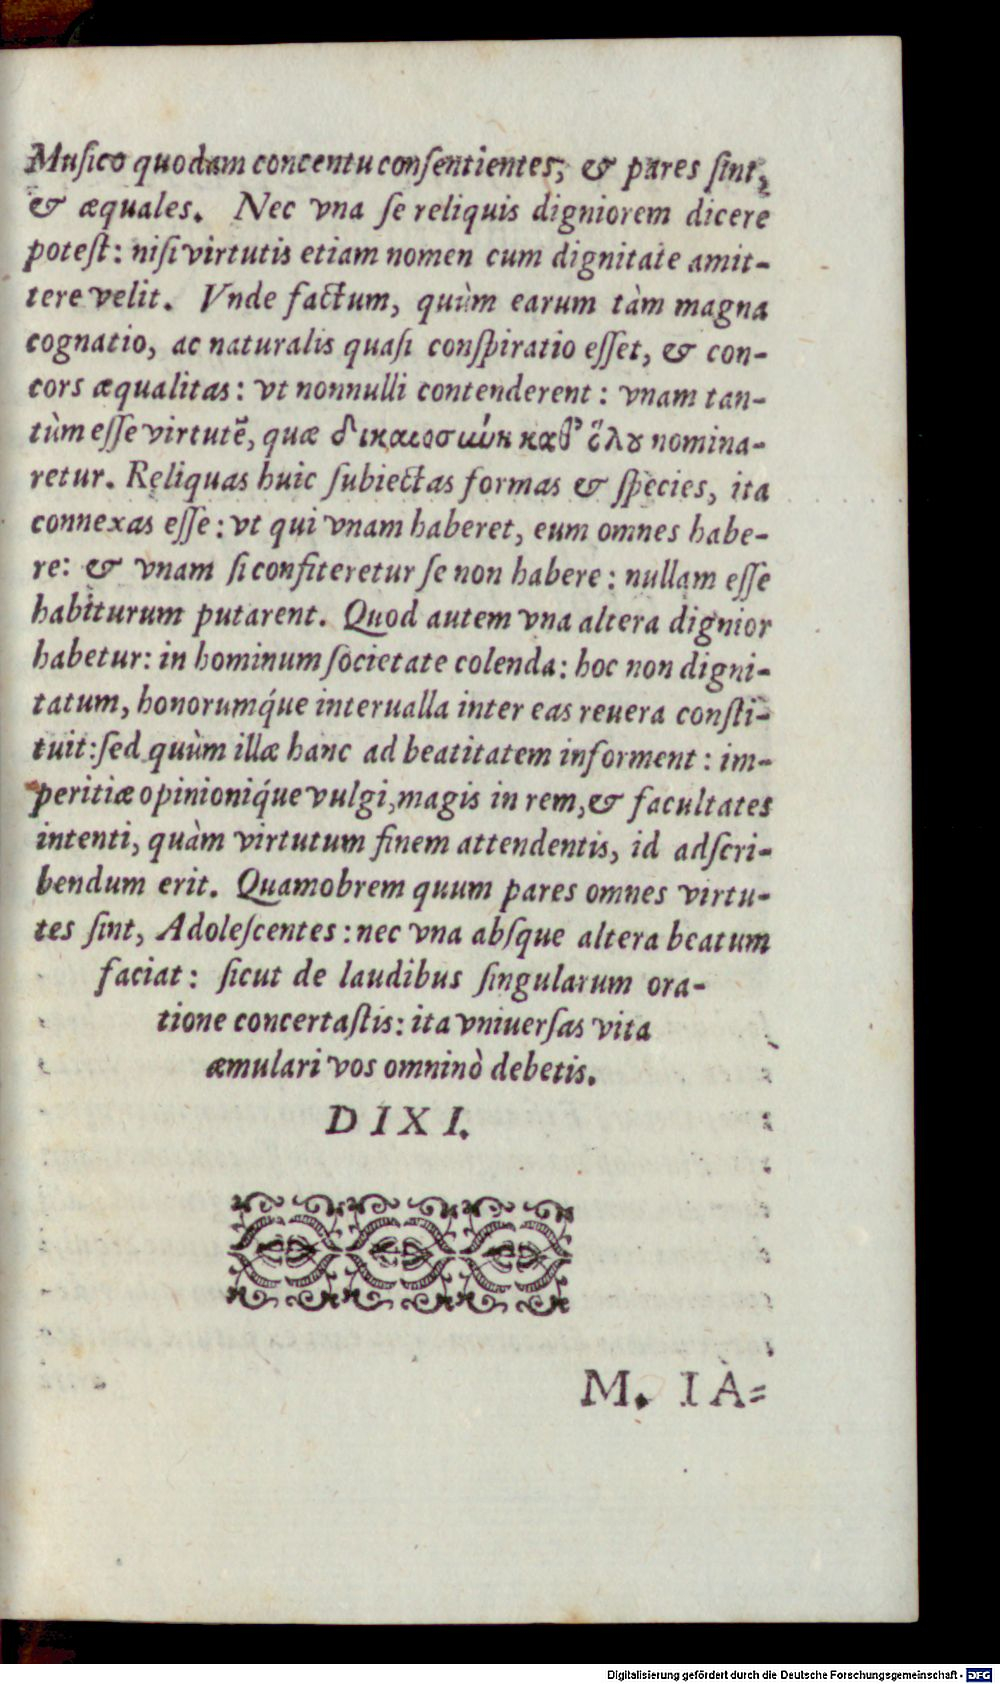 Muſico quodam concentu conſentientes, & pares ſint,
& æquales. Nec vna ſe reliquis digniorem dicere
poteſt: niſi virtutis etiam nomen cum dignitate amit-
tere velit. Vnde factum, quùm earum tàm magna
cognatio, ac naturalis quaſi conſpiratio eſſet, & con-
cors æqualitas: vt nonnulli contenderent: vnam tan-
tùm eſſe virtutē, quæ δικαιοσιώη καθ' ὅλου nomina-
retur. Reliquas huic ſubiectas formas & ſpecies, ita
connexas eſſe: vt qui vnam haberet, eum omnes habe-
re: & vnam ſi confiteretur ſe non habere: nullam eſſe
habiturum putarent. Quod autem vna altera dignior
habetur: in hominum ſocietate colenda: hoc non digni-
tatum, honorumq́ue interualla inter eas reuera conſti-
tuit: ſed quùm illæ hanc ad beatitatem informent: im-
peritiæ opinioniq́ue vulgi, magis in rem, & facultates
intenti, quàm virtutum finem attendentis, id adſcri-
bendum erit. Quamobrem quum pares omnes virtu-
tes ſint, Adoleſcentes: nec vna abſque altera beatum
faciat: ſicut de laudibus ſingularum ora-
tione concertaſtis: ita vniuerſas vita
æmulari vos omninò debetis.
DIXI.
M. IA=
Digitalisierung gefördert durch die Deutsche Forschungsgemeinschaft - DFG